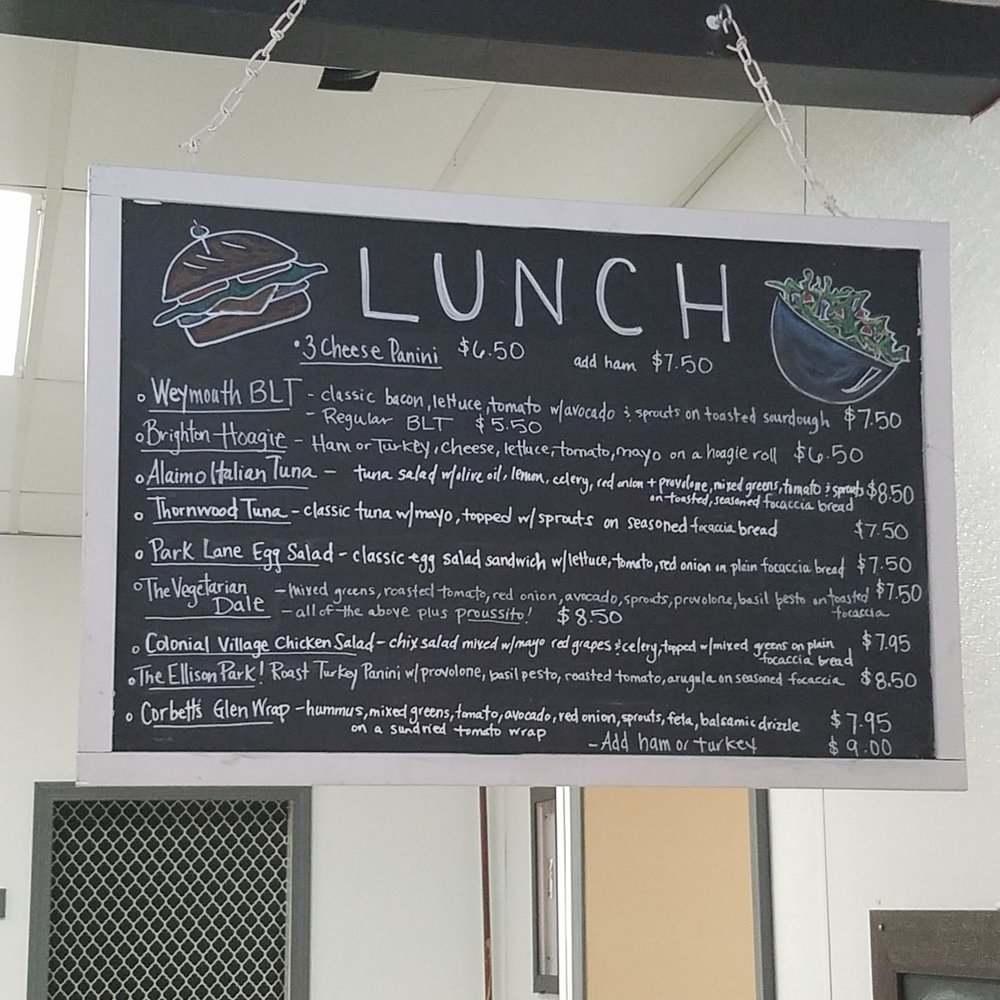 LUNCH
• 3 Cheese Panini $6.50 add ham $7.50
o Weymouth BLT - classic bacon, lettuce, tomato w/avocado & sprouts on toasted sourdough $7.50
- Regular BLT $5.50
o Brighton Hoagie - Ham or Turkey, cheese, lettuce, tomato, mayo on a hoagie roll $6.50
o Alaimo Italian Tuna - tuna salad w/olive oil, lemon, celery, red onion + provolone, mixed greens, tomato & sprouts $8.50
on toasted, seasoned focaccia bread
o Thornwood Tuna - classic tuna w/mayo, topped w/sprouts on seasoned focaccia bread $7.50
o Park Lane Egg Salad - classic egg salad sandwich w/lettuce, tomato, red onion on plain focaccia bread $7.50
o The Vegetarian - mixed greens, roasted tomato, red onion, avocado, sprouts, provolone, basil pesto on toasted $7.50
Dale - all of the above plus proussito! $8.50 focaccia
o Colonial Village Chicken Salad - chix salad mixed w/mayo red grapes & celery, topped w/mixed greens on plain $7.95
focaccia bread
o The Ellison Park! Roast Turkey Panini w/provolone, basil pesto, roasted tomato, arugula on seasoned focaccia $8.50
o Corbett's Glen Wrap - hummus, mixed greens, tomato, avocado, red onion, sprouts, feta, balsamic drizzle $7.95
on a sundried tomato wrap
- Add ham or turkey $9.00